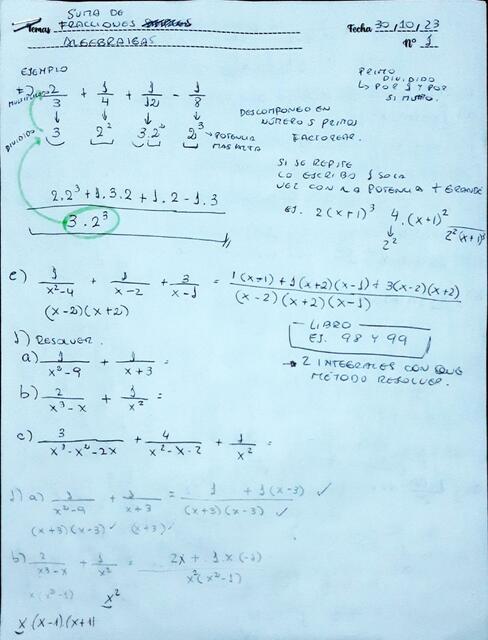 SUMA DE
Temas FRACCIONES
ALGEBRAICAS
Fecha 30/10/23
N° 1
EJEMPLO
2/3 + 1/4 + 1/12 - 1/8
MULTIPLICADO
DIVIDIDO 3 2² 3.2² 2³ → POTENCIA
MAS ALTA
PRIMO
DIVIDIDO
↳ POR 1 Y POR
SI MISMO.
DESCOMPONGO EN
NÚMEROS PRIMOS
FACTOREAR.
2.2³ + 1.3.2 + 1.2 - 1.3
3.2³
SI SE REPITE
LO ESCRIBO 1 SOLA
VEZ CON LA POTENCIA + GRANDE
EJ. 2(x+1)³ 4.(x+1)²
2²
2²(x+1)³
e) 1/(x²-4) + 1/(x-2) + 3/(x-1) = (1(x-1) + 1(x+2)(x-1) + 3(x-2)(x+2))/((x-2)(x+2)(x-1))
(x-2)(x+2)
LIBRO
EJ. 98 Y 99
→ 2 INTEGRALES CON QUE
MÉTODO RESOLVER.
1) RESOLVER.
a) 1/(x²-9) + 1/(x+3) =
b) 2/(x³-x) + 1/x² =
c) 3/(x³-x²-2x) + 4/(x²-x-2) + 1/x² =
1) a) 1/(x²-9) + 1/(x+3) = (1 + 1(x-3))/((x+3)(x-3)) ✓
(x+3)(x-3) ✓ (x+3) ✓
b) 2/(x³-x) + 1/x² = (2x + 1x(-1))/(x²(x²-1))
x(x²-1) x²
x.(x-1).(x+1)